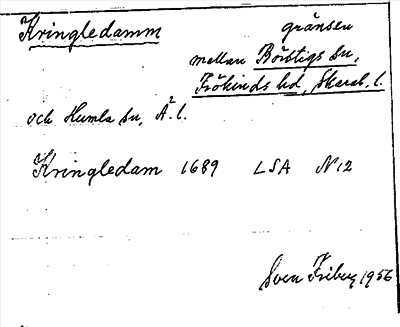 Kringledamm gränsen
mellan Börstigs sn,
Frökinds hd, Skarab. l.
och Humla sn, Ä. l.
Kringledam 1689 LSA N12
Sven Friberg 1956